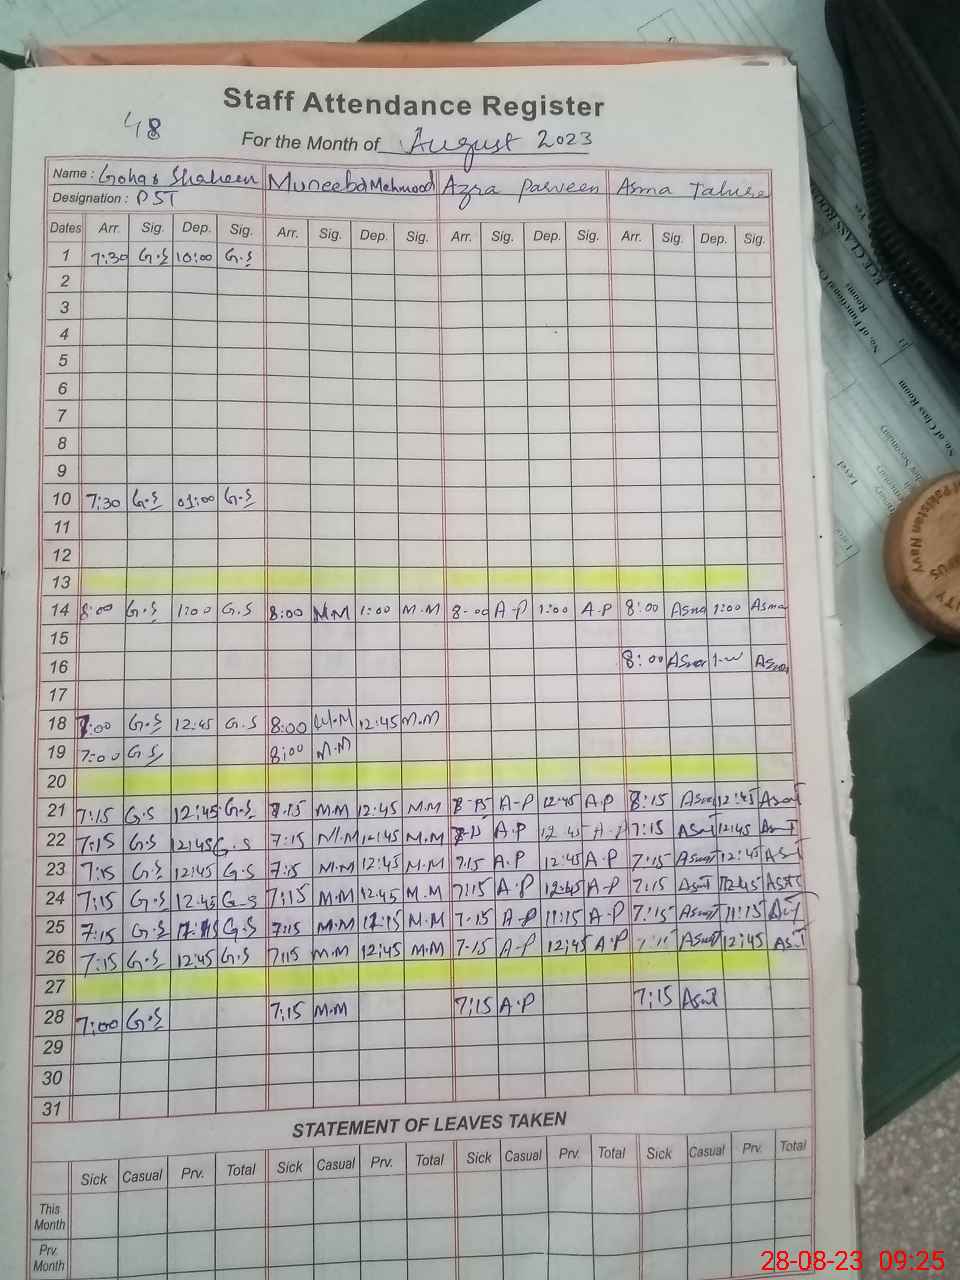 Staff Attendance Register
48
For the Month of August 2023
Name : Gohar Shaheen Muneeba Mehmood Azra Parveen Asma
Designation : PST
Dates Arr. Sig. Dep. Sig. Arr. Sig. Dep. Sig. Arr. Sig. Dep. Sig. Arr. Sig. Dep. Sig.
1 7:30 G.S 10:00 G.S
2
3
4
5
6
7
8
9
10 7:30 G.S 01:00 G.S
11
12
13
14 8:00 G.S 1:00 G.S 8:00 M.M 1:00 M.M 8-00 A-P 1:00 A.P 8:00 Asma 1:00 Asma
15
16 8:00 Asma Asma
17
18 7:00 G.S 12:45 G.S 8:00 M.M 12:45 M.M
19 7:00 G.S 8:00 M.M
20
21 7:15 G.S 12:45 G.S 7:15 M.M 12:45 M.M A-P 12:45 A.P 8:15 12:45
22 7:15 G.S 12:45 G.S 7:15 M.M 12:45 M.M A.P 12:45 A-P 7:15 12:45
23 7:15 G.S 12:45 G.S 7:15 M.M 12:45 M.M 7.15 A.P 12:45 A.P 7:15 12:45
24 7:15 G.S 12:45 G-S 7:15 M.M 12:45 M.M 7:15 A.P 12:45 A-P 7:15 12:45
25 7:15 G.S G.S 7:15 M.M M.M 7-15 A-P 11:15 A-P 7:15 11:15
26 7:15 G.S 12:45 G.S 7:15 M.M 12:45 M.M 7-15 A-P 12:45 A.P 12:45
27
28 7:00 G.S 7:15 M.M 7:15 A.P 7:15
29
30
31
STATEMENT OF LEAVES TAKEN
Sick Casual Prv. Total Sick Casual Prv. Total Sick Casual Prv. Total Sick Casual Prv. Total
This
Month
Prv.
Month
ECE CLASS ROOM
Rooms
No. of Functional
No. of Class Room
Level
of Pakistan Navy
28-08-23 09:25